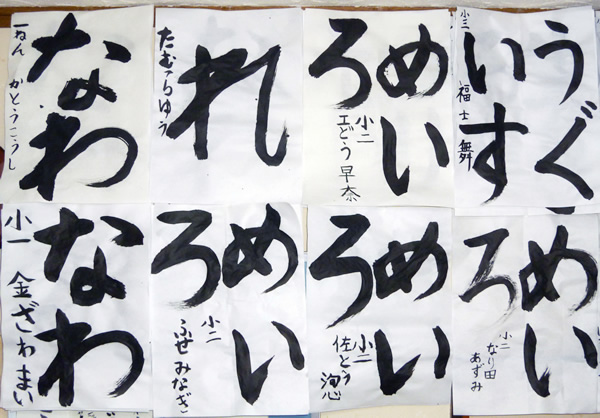 なわ
一ねん かとうこうし
れ
たむらりゅう
めい
ろ
小二
工どう 早奈
うぐ
いす
小三
福士 舞
なわ
小一 金ざわまい
めい
ろ
小二
ふせ みなぎさ
めい
ろ
小二
佐とう
めい
ろ
小二
なり田
あずみ